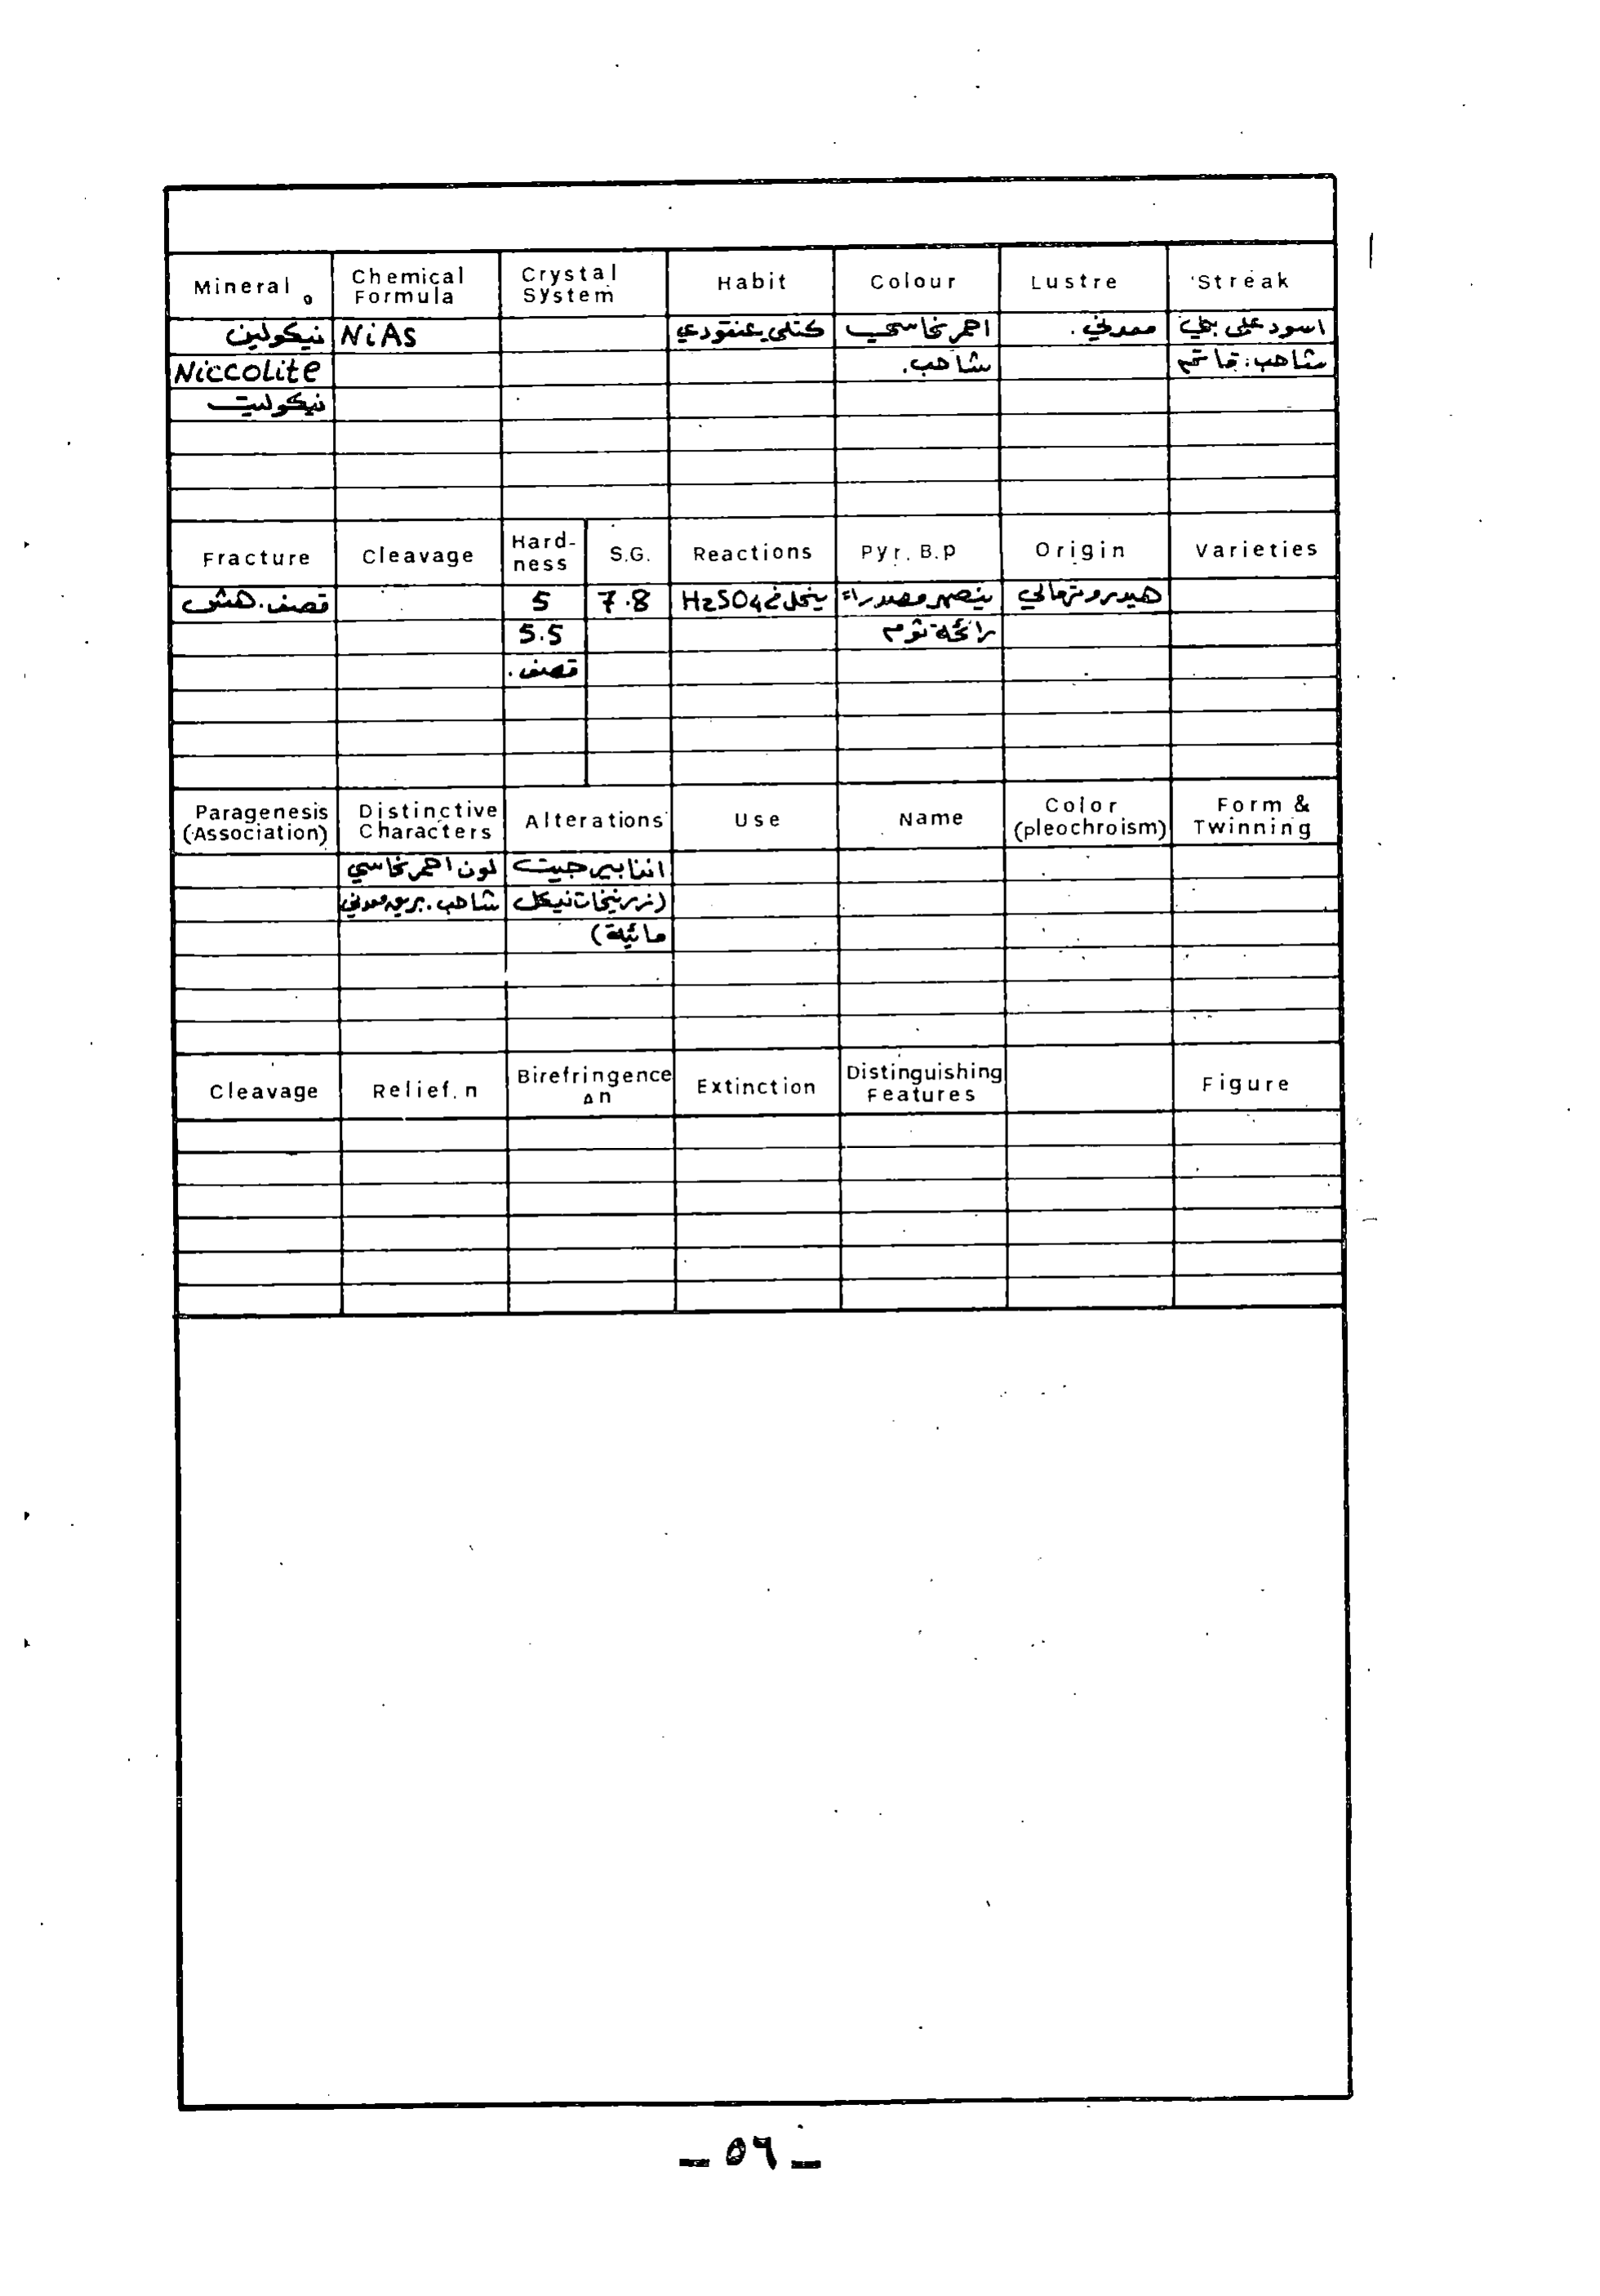 Mineral	Chemical Formula	Crystal System	Habit	Colour	Lustre	Streak
نيكولين	NiAs		كتلي عنقودي	احمر نحاسي	معدني .	اسود على بني
Niccolite				شاحب.		شاحب: قاتم
نيكوليت
Fracture	Cleavage	Hard-ness	S.G.	Reactions	Pyr. B.p	Origin	Varieties
قصف. هش		5	7.8	ينحل في H2SO4	ينصهر مصدراً	هيدروترمالي
		5.5			رائحة ثوم
		قصف .
Paragenesis (Association)	Distinctive Characters	Alterations	Use	Name	Color (pleochroism)	Form & Twinning
	لون احمر نحاسي	انابيرجيت
	شاحب. بريق معدني	(زرنيخات نيكل
		مائية)
Cleavage	Relief. n	Birefringence Δn	Extinction	Distinguishing Features		Figure
_ ٥٩ _